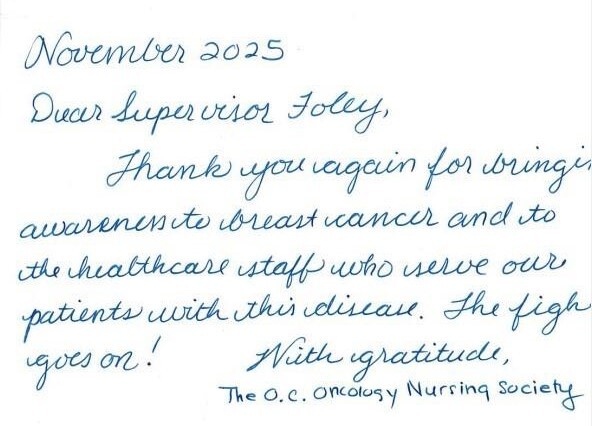 November 2025
Dear Supervisor Foley,
Thank you again for bringin
awareness to breast cancer and to
the healthcare staff who serve our
patients with this disease. The figh
goes on! With gratitude,
The O.C. Oncology Nursing Society